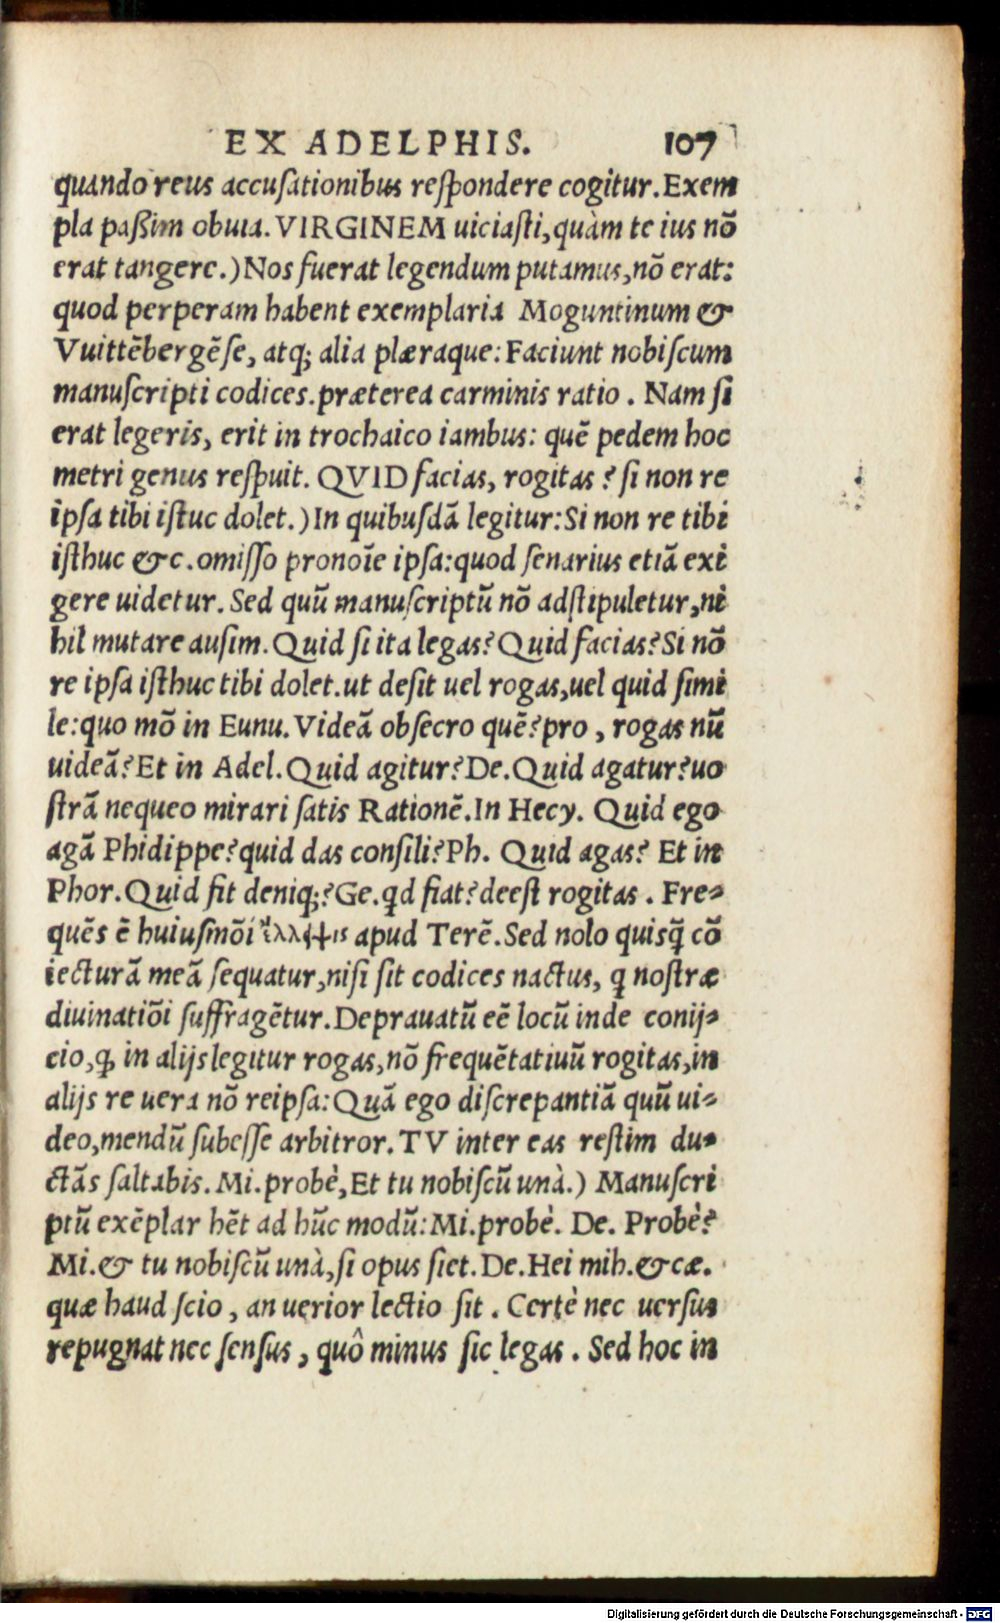 EX ADELPHIS. 107
quando reus accusationibus respondere cogitur. Exem
pla paßim obuia. VIRGINEM uiciasti, quàm te ius nõ
erat tangere.) Nos fuerat legendum putamus, nõ erat:
quod perperam habent exemplaria Moguntinum &
Vuittẽbergẽse, atq; alia plæraque: Faciunt nobiscum
manuscripti codices. præterea carminis ratio. Nam si
erat legeris, erit in trochaico iambus: quẽ pedem hoc
metri genus respuit. QVID facias, rogitas? si non re
ipsa tibi istuc dolet.) In quibusdã legitur: Si non re tibi
isthuc &c. omisso pronoĩe ipsa: quod senarius etiã exi
gere uidetur. Sed quũ manuscriptũ nõ adstipuletur, ni
hil mutare ausim. Quid si ita legas? Quid facias? Si nõ
re ipsa isthuc tibi dolet. ut desit uel rogas, uel quid simi
le: quo mõ in Eunu. Videã obsecro quẽ? pro, rogas nũ
uideã? Et in Adel. Quid agitur? De. Quid agatur? uo
strã nequeo mirari satis Rationẽ. In Hecy. Quid ego
agã Phidippe? quid das consili? Ph. Quid agas? Et in
Phor. Quid fit deniq;? Ge. qd fiat? deest rogitas. Fre-
quẽs ẽ huiusmõi ἔλλειψις apud Terẽ. Sed nolo quisq̃ cõ
iecturã meã sequatur, nisi sit codices nactus, q nostræ
diuinatiõi suffragẽtur. Deprauatũ eẽ locũ inde conij-
cio, q, in alijs legitur rogas, nõ frequẽtatiuũ rogitas, in
alijs re uera nõ reipsa: Quã ego discrepantiã quũ ui-
deo, mendũ subesse arbitror. TV inter eas restim du-
ctãs saltabis. Mi. probè, Et tu nobiscũ unà.) Manuscri
ptũ exẽplar hẽt ad hũc modũ: Mi. probè. De. Probè?
Mi. & tu nobiscũ unà, si opus siet. De. Hei mih. & cæ.
quæ haud scio, an uerior lectio sit. Certè nec uersus
repugnat nec sensus, quô minus sic legas. Sed hoc in
Digitalisierung gefördert durch die Deutsche Forschungsgemeinschaft - DFG